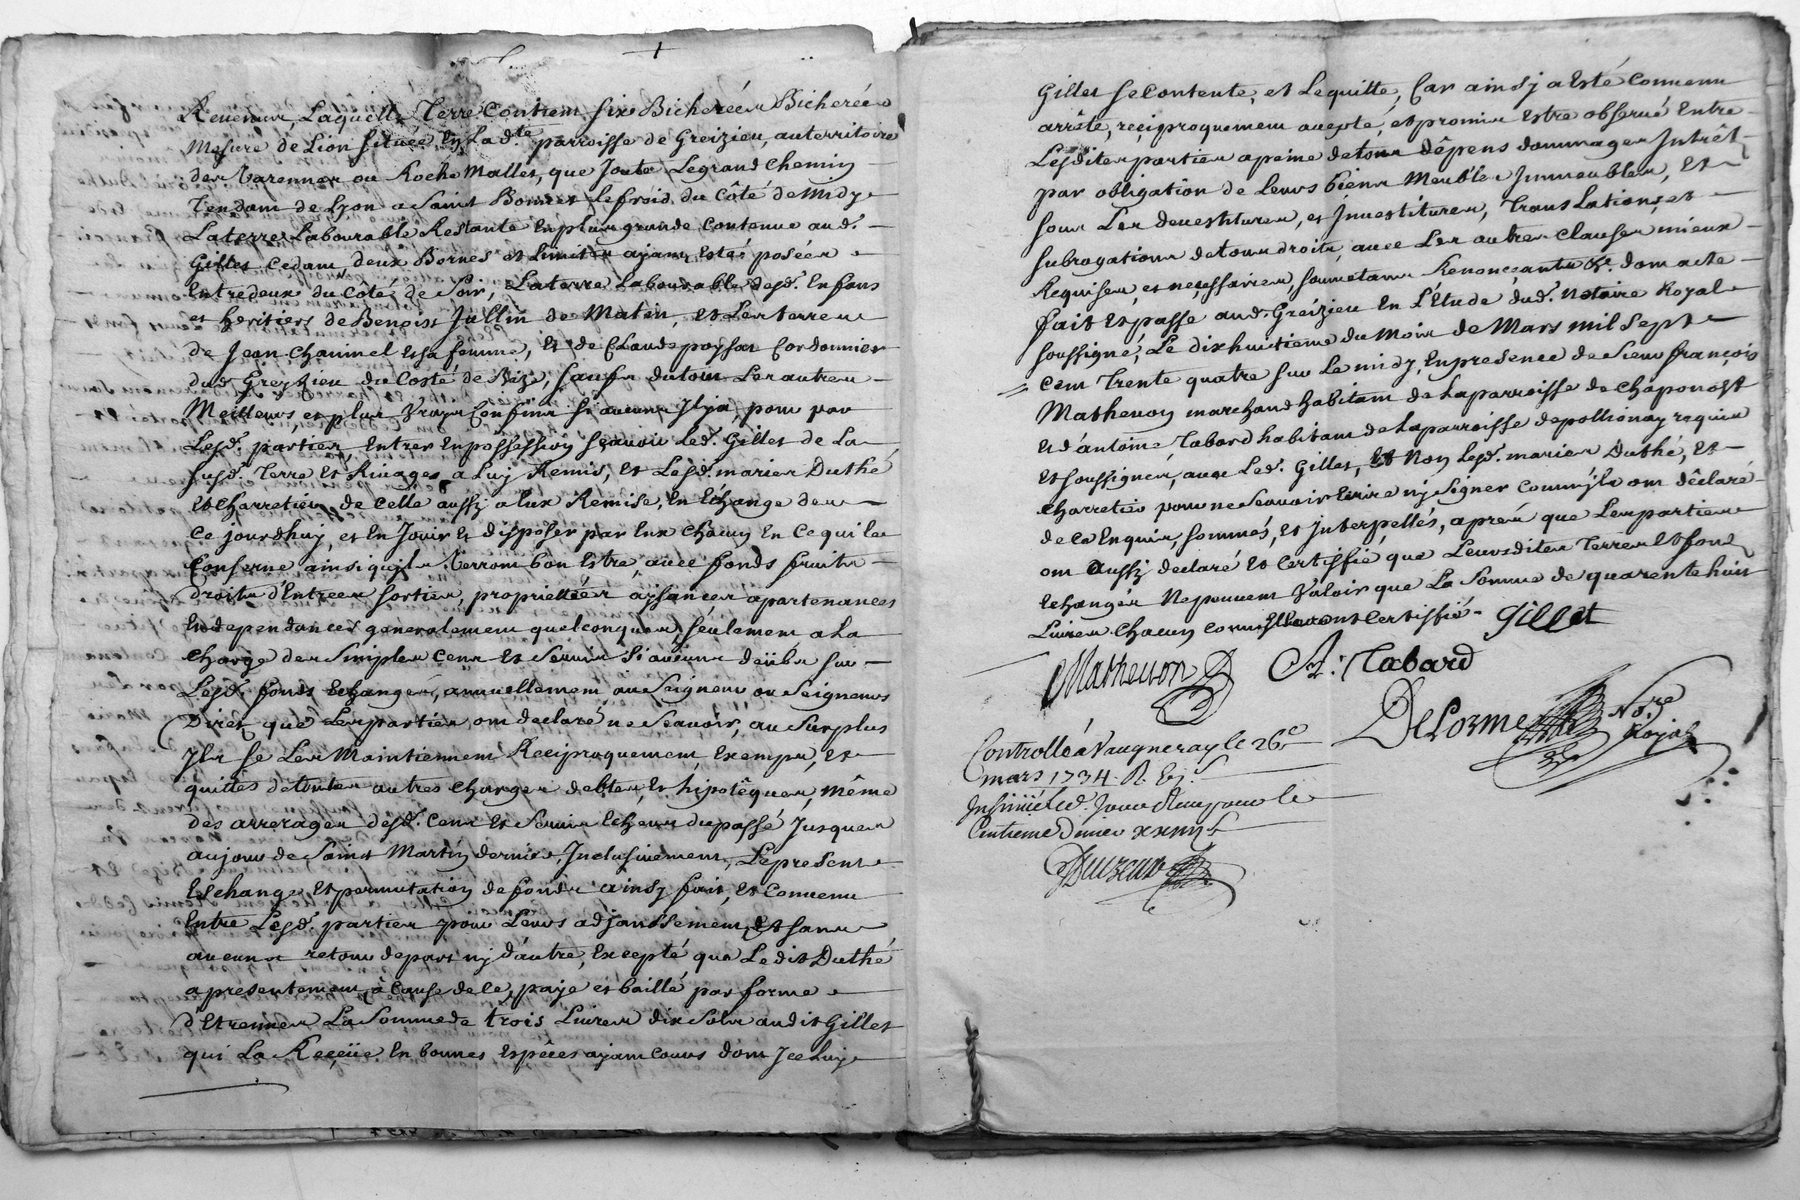 Revenus, Laquelle Terre Contient six Bicherées Bicherée
Mesure de Lion situéé En Lad.te parroisse de Greizieu, au territoire
des Varennes ou Roche Mallet, que Joute Legrand Chemin
Tendant de Lyon a Saint Bonnet Lefroid du Côté de Midy
Laterre Labourable Restante En plus grande Contenue aud.
Gillet Cedant deux Bornes et Limites ayant Estéé poséés
Entredeux du Côté de Soir, Laterre Labourable desd. Enfans
et heritiers de Benoist Jullin de Matin, et Les terres
de Jean Chaumel et sa femme, Et de Claude Cordonnier
dud. Greyzieu du Costé de Bize, saufs du tout Les autres
Meilleurs, et plus Vrays Confins si aucuns Jlya, pour par
Lesd. parties, Entrer En possession sçavoir Led. Gillet de La
susd. Terre Et Rivages a Luy Remis, Et Lesd. mariés Duthé
et Charretier de Celle aussy a Eux Remise, En Echange des
Ce jourdhuy, et En Jouir Et disposer par Eux Chacun En Ce qui le
Conserne ainsi quils Verront bon Estre, avec fonds fruits
droits d'Entrées sorties, propriettéés aysances apartenances
Endependances generalement quelconques, seulement a La
Charge des simples Cens Et Servis si aucuns deübs sur
Lesd. fonds Echangés, annuellement au Seigneur ou Seigneurs
Direct que Les parties, ont declaré ne Scavoir, au Surplus
Jls se Les Maintiennent Reciproquement Exempts, Et
quittes de toutes autres Charges debtes, Et hipotêques, même
des arrerages desd. Cens Et Servis Echeus du passé Jusques
au jour de Saint Martin dernier, Jnclusivement, Le present
Eschange Et permutation de fonds ainsy fait, Et Convenu
Entre Lesd. parties pour Leurs adjancement, Et sans
aucuns retour de part ny d'autre, Excepté que Ledit Duthé
a presentement, à Cause de Ce, payé et baillé par forme
d'Etrennes La Somme de trois Livres dix Sols audit Gillet
qui La Reçeüe En bonnes Espêces ayant Cours dont Jceluy
Gillet se Contente, et Lequitte, Car ainsy a Esté Convenu
arrêté, reçiproquement accepté, et promis Estre observé Entre
Lesdites parties a peine de tous dêpens dommages Jntrêt
par obligation de Leurs biens Meubles Jmmeubles, Et
sous Les devestitures, et Jnvestitures, Translations, et
subrogations de tous droits, avec Les autres Clauses mieux
Requises, et neçessaires, soumettans Renonçants &c. dont acte
fait Et passé aud. Greizieu En L'Etude, dud. Notaire Royal
soussigné, Le dix huitieme du Mois de Mars mil Sept
Cent Trente quatre sur Le midy, En presence de Sieur françois
Mathevon marchand habitant de La parroisse de Chaponost
Et d'antoine Tabard habitant de La parroisse de pollionay requis
Et soussignés, avec Led. Gillet, Et Non Lesd. mariés Duthé, Et
Charretier pour ne Scavoir Ecrire ny Signer Comm'jls ont dêclaré
de Ce Enquis, sommés, Et Jnterpellés, aprés que Les parties
ont aussy declaré Et Certiffié, que Leursdites Terres Et fond
Echangés Ne peuvent Valoir que La Somme de quarente huit
Livres Chacun Comm'jls ont Certiffié. Gillet
Mathevon A: Tabard
Delorme No.re
Royal
Controllé a Vaugneray le 26e
mars 1734. R.
Insinüé led. Jour
Centieme Denier